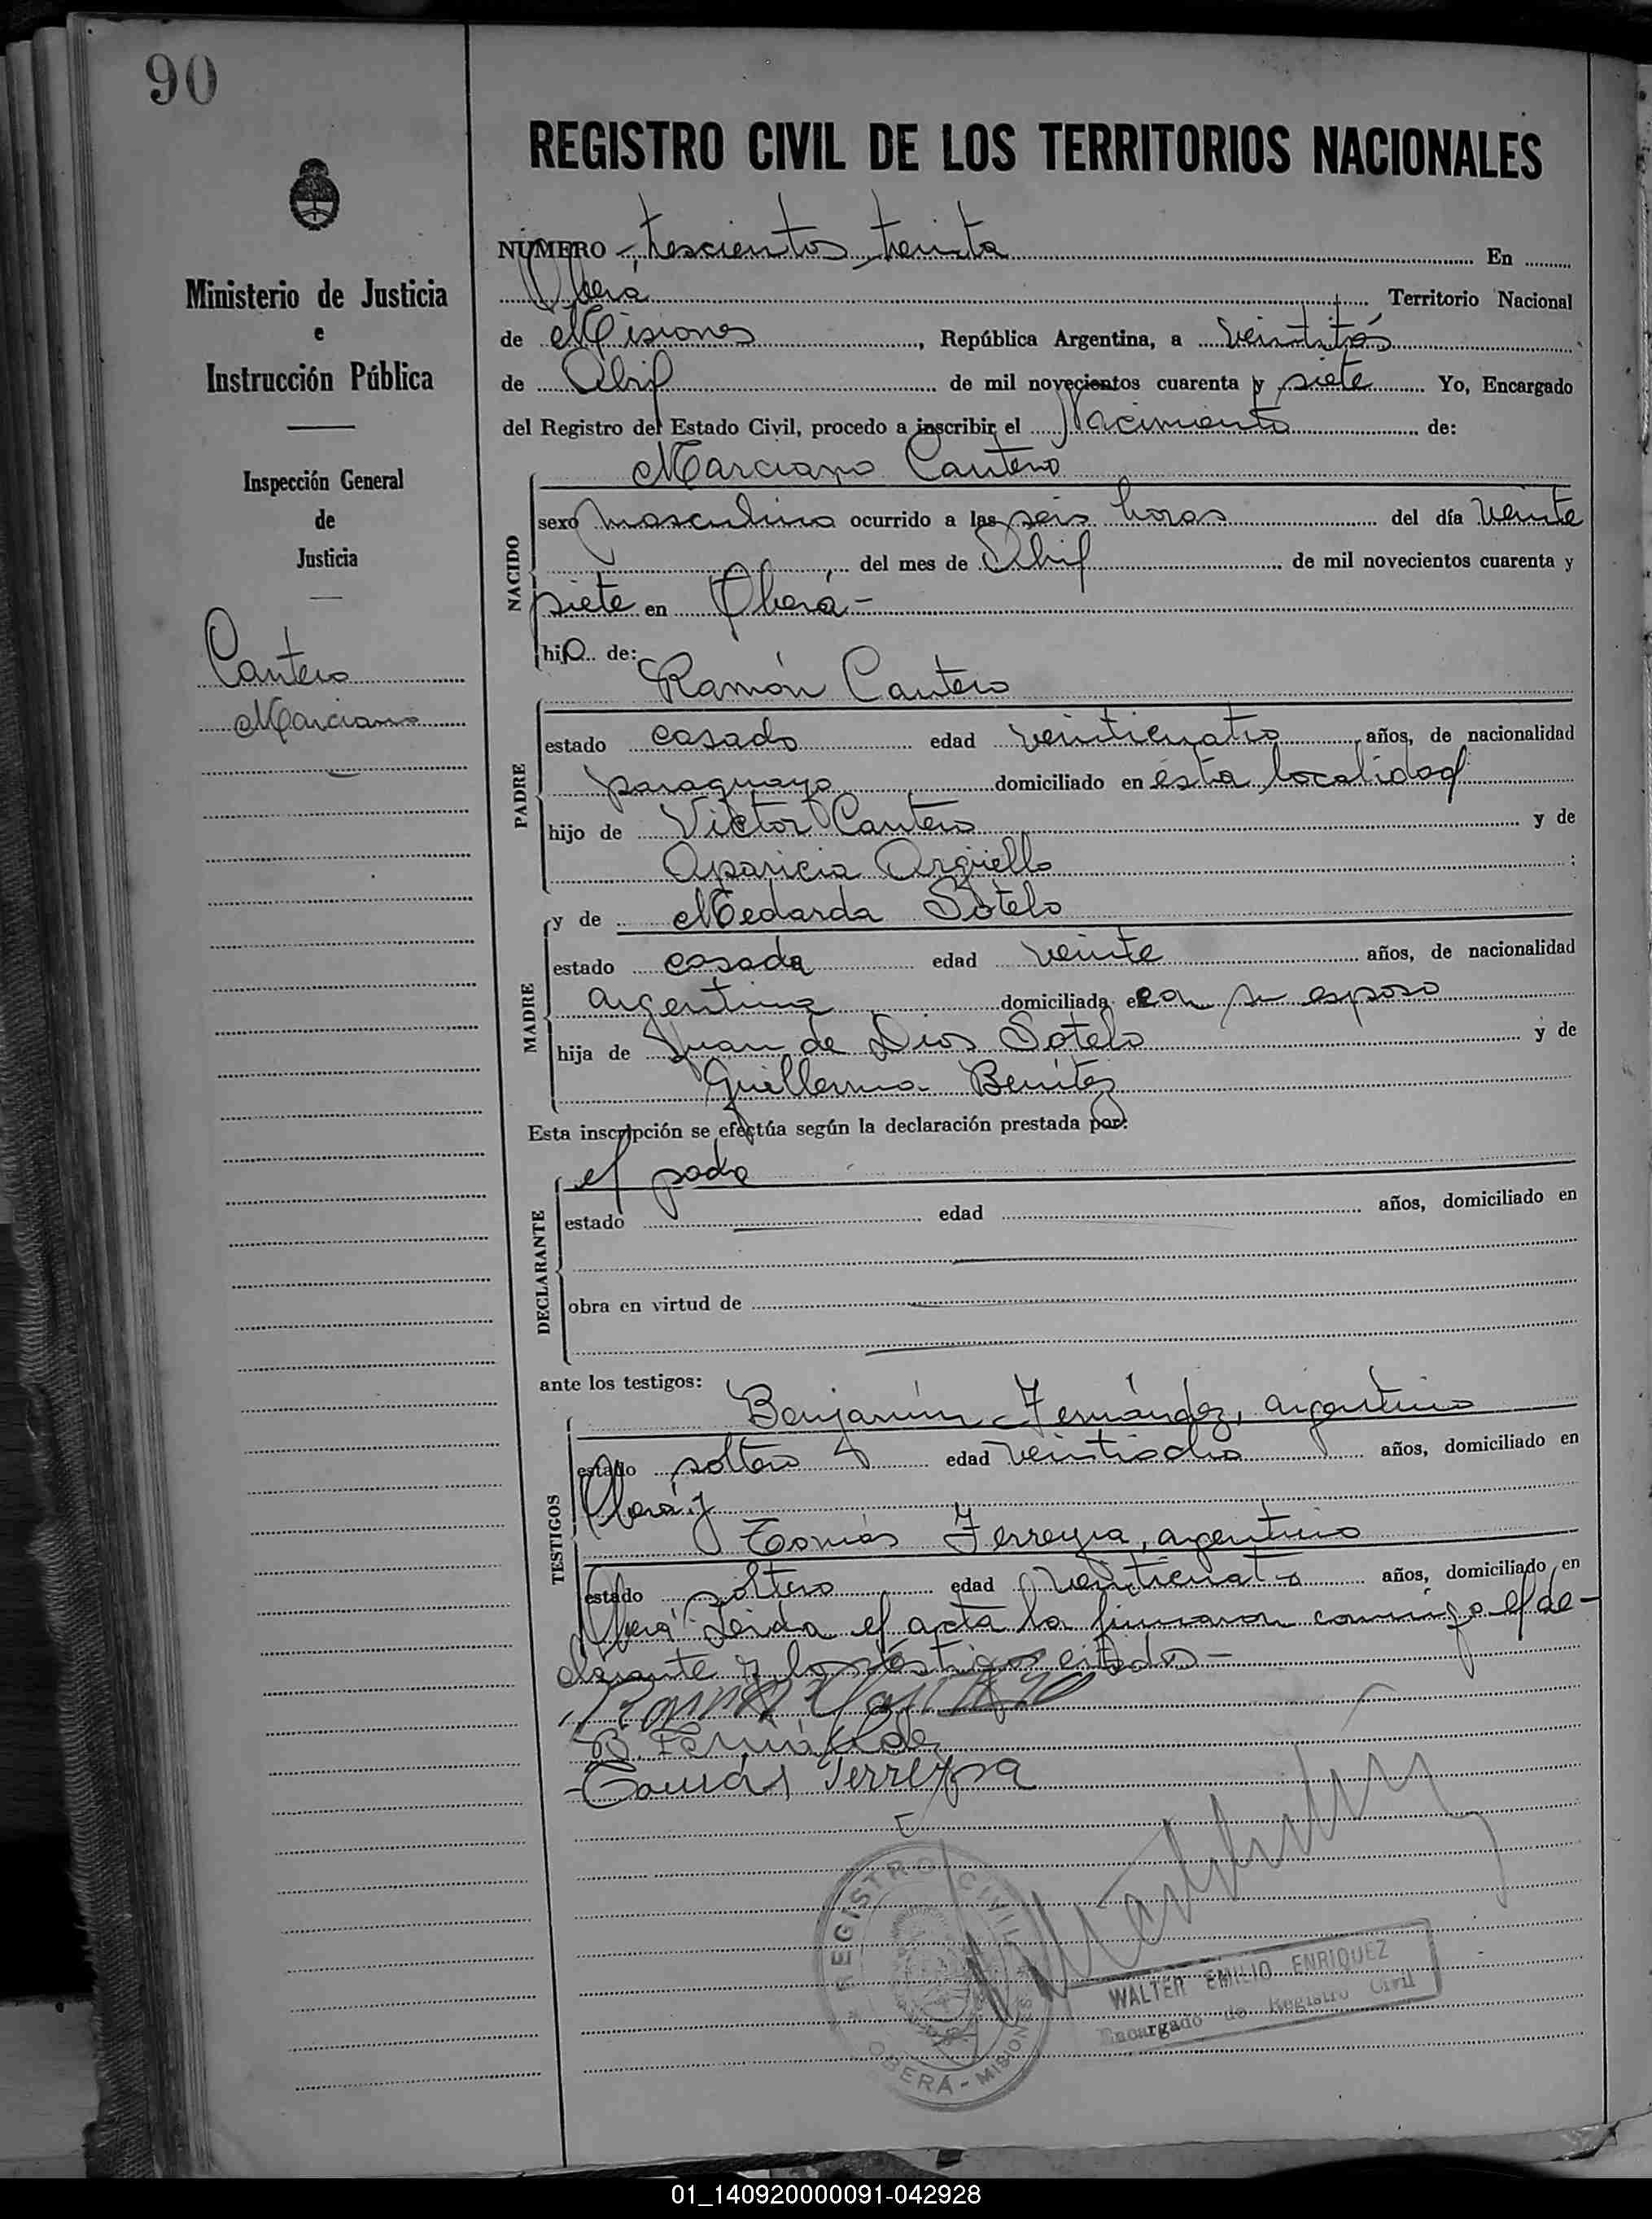 90
REGISTRO CIVIL DE LOS TERRITORIOS NACIONALES
Ministerio de Justicia
e
Instrucción Pública
Inspección General
de
Justicia
Cantero
Marciano
NÚMERO trescientos treinta En
Oberá Territorio Nacional
de Misiones, República Argentina, a veintitrés
de Abril de mil novecientos cuarenta y siete Yo, Encargado
del Registro del Estado Civil, procedo a inscribir el Nacimiento de:
Marciano Cantero
NACIDO
sexo masculino ocurrido a las seis horas del día veinte
del mes de Abril de mil novecientos cuarenta y
siete en Oberá-
hijo de:
Ramón Cantero
PADRE
estado casado edad veinticuatro años, de nacionalidad
paraguaya domiciliado en ésta localidad
hijo de Victor Cantero y de
Aparicia Argüello;
y de Medarda Sotelo
MADRE
estado casada edad veinte años, de nacionalidad
argentina domiciliada con su esposo
hija de Juan de Dios Sotelo y de
Guillerma Benítez
Esta inscripción se efectúa según la declaración prestada por:
el padre
DECLARANTE
estado edad años, domiciliado en
obra en virtud de
ante los testigos:
Benjamín Fernández, argentino
TESTIGOS
estado soltero edad veintiocho años, domiciliado en
Oberá y
Tomás Ferreyra, argentino
estado soltero edad veinticuatro años, domiciliado en
Oberá. Leida el acta la firmaron conmigo el de-
clarante y los testigos citados-
Ramon Cantero
B. Fernández
Tomás Ferreyra
REGISTRO CIVIL
OBERA - MISIONES
WALTER EMILIO ENRIQUEZ
Encargado de Registro Civil
01_140920000091-042928